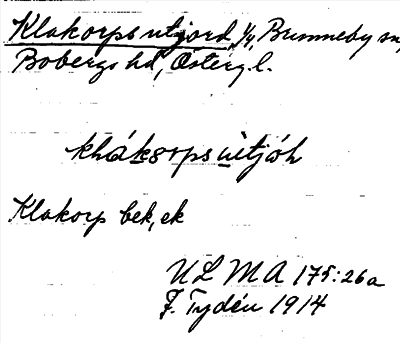 Klakorps utjord 1/4, Brunneby sn,
Bobergs hd, Österg.l.
khåksorps ùtjóh
Klakorp bek, ek
ULMA 175:26a
F. Tydén 1914